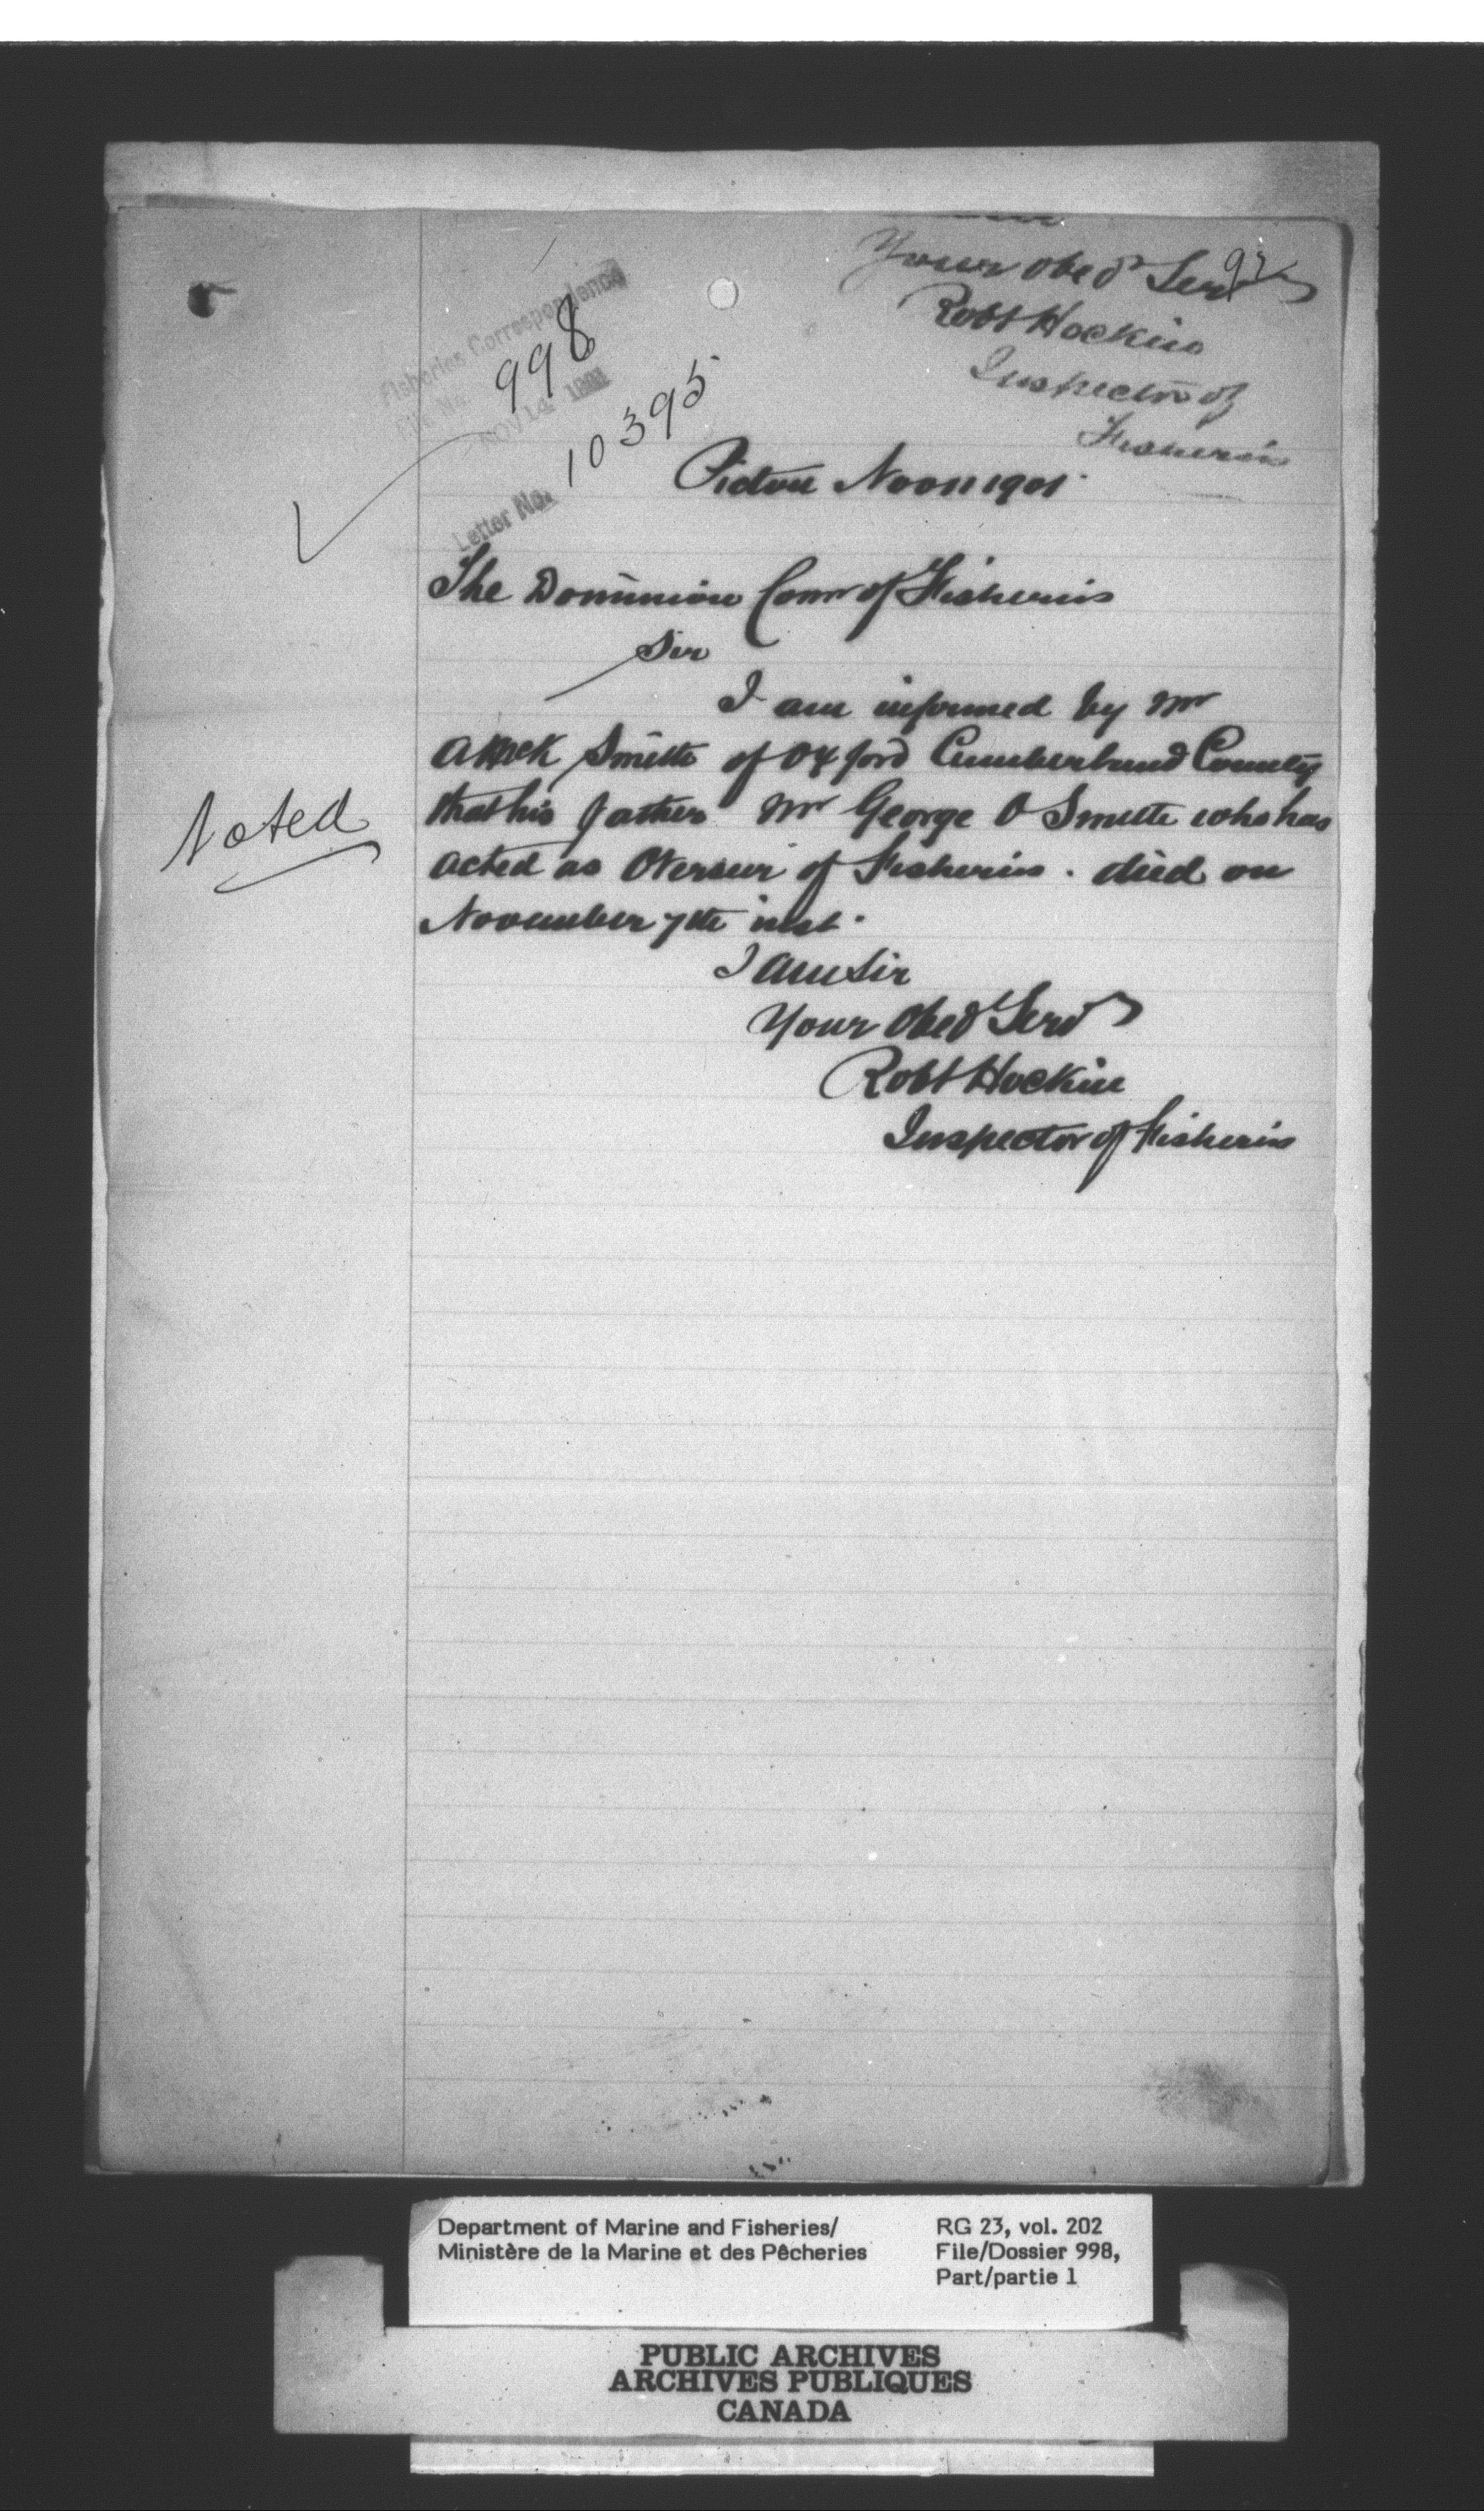 Your Obed Servt
92
Robt Hockin
Inspector of
Fisheries
Fisheries Correspondence
File No. 998
NOV 14 1901
Letter No. 10395
Pictou Nov 11 1901
The Dominion Comr of Fisheries
Sir
I am informed by Mr
Smith of Oxford Cumberland County
Noted
that his father Mr George O Smith who has
acted as Overseer of Fisheries. died on
November 7th inst.
I am Sir
Your Obed Servt
Robt Hockin
Inspector of Fisheries
Department of Marine and Fisheries/
Ministère de la Marine et des Pêcheries
RG 23, vol. 202
File/Dossier 998,
Part/partie 1
PUBLIC ARCHIVES
ARCHIVES PUBLIQUES
CANADA